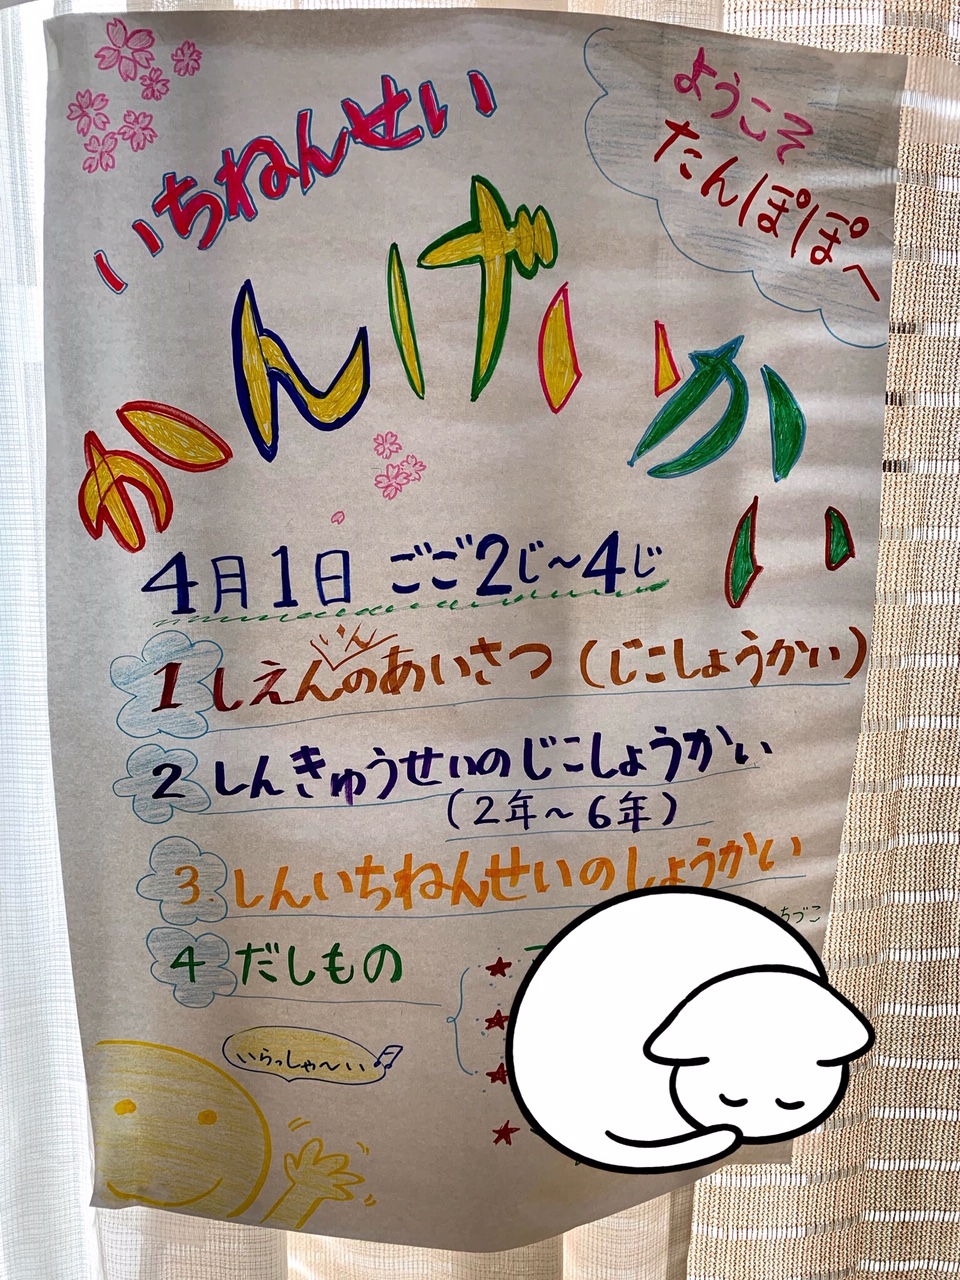 いちねんせい
ようこそ
たんぽぽへ
かんげいかい
4月1日 ごご2じ〜4じ
1 しえんいんのあいさつ（じこしょうかい）
2 しんきゅうせいのじこしょうかい
（2年〜6年）
3. しんいちねんせいのしょうかい
4 だしもの
いらっしゃ〜い